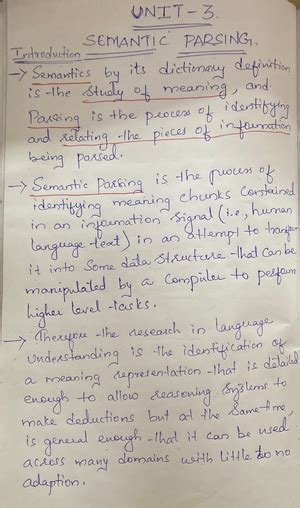 UNIT-3.
SEMANTIC PARSING.
Introduction
→ Semantics by its dictionary definition
is the study of meaning, and
Parsing is the process of identifying
and relating the pieces of information
being parsed.
→ Semantic Parsing is the process of
identifying meaning chunks contained
in an information signal (i.e., human
language text) in an attempt to transform
it into some data structure that can be
manipulated by a computer to perform
higher level tasks.
→ Therefore the research in language
understanding is the identification of
a meaning representation that is detailed
enough to allow reasoning systems to
make deductions but at the same time,
is general enough that it can be used
across many domains with little to no
adaption.